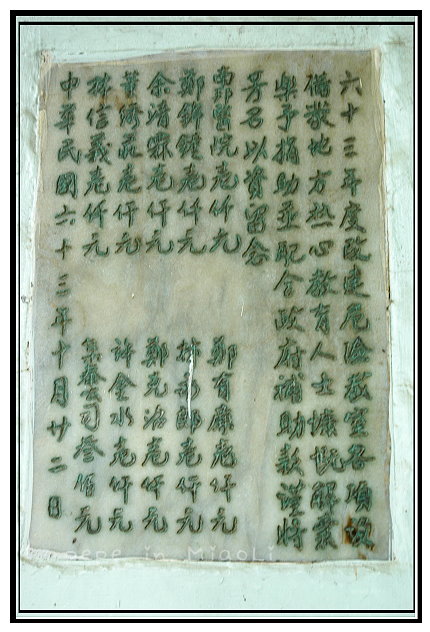 六十三年度改建危險教室各項設
備地方热心教育人士慷慨解囊
樂予捐助並配合政府補助款謹將
芳名以資留念
醫院壱仟元 鄭有壱仟元
鄭錦鐘壱仟元 郎壱仟元
余清霖壱仟元 鄭元壱仟元
葉莊壱仟元 許金水壱仟元
林信義壱仟元 泰公司叁佰元
中華民國六十三年十月廿二日
pepe in Miaoli